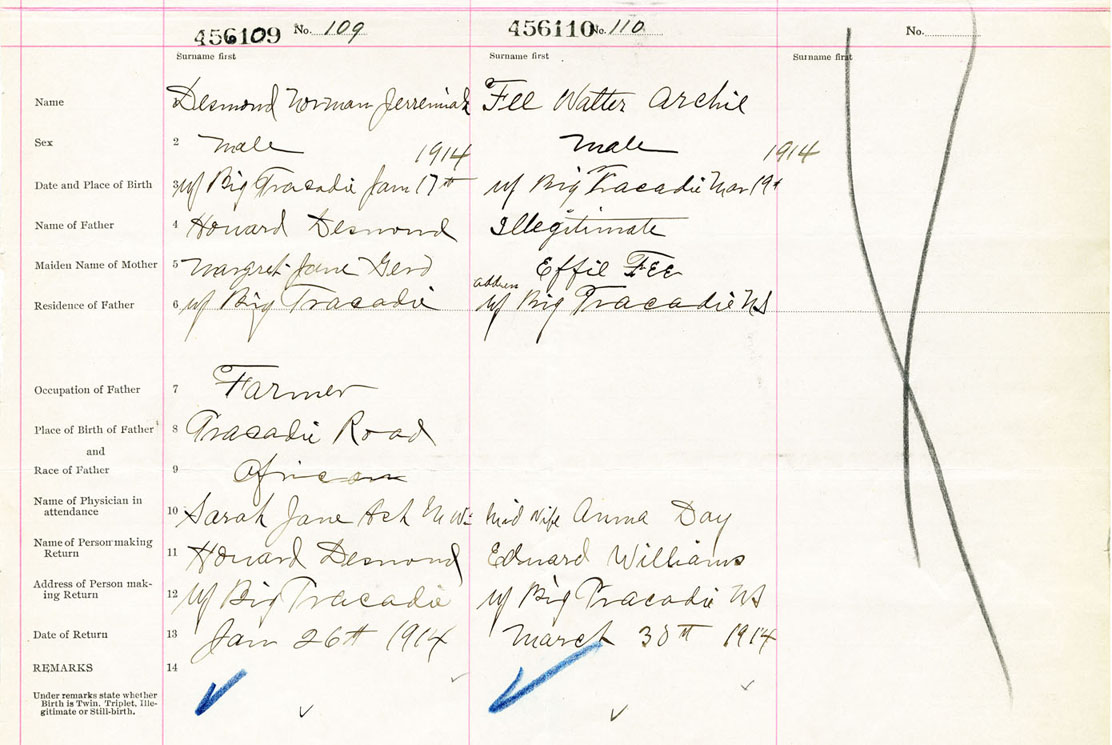 456109 No. 109 456110 No. 110 No.
Surname first Surname first Surname first
Name Desmond Norman Jerremiah Fee Walter Archie
Sex 2 male male
1914 1914
Date and Place of Birth 3 Big Tracadie Jan 17th Big Tracadie Mar 19
Name of Father 4 Howard Desmond Illegitimate
Maiden Name of Mother 5 Margret Jane Effie Fee
address
Residence of Father 6 Big Tracadie Big Tracadie NS
Occupation of Father 7 Farmer
Place of Birth of Father 8 Tracadie Road
and
Race of Father 9 African
Name of Physician in
attendance 10 Sarah Jane Ash Mid Wife Anma Day
Name of Person making
Return 11 Howard Desmond Edward Williams
Address of Person mak-
ing Return 12 Big Tracadie Big Tracadie NS
Date of Return 13 Jan 26th 1914 March 30th 1914
REMARKS 14
Under remarks state whether
Birth is Twin, Triplet, Ille-
gitimate or Still-birth.